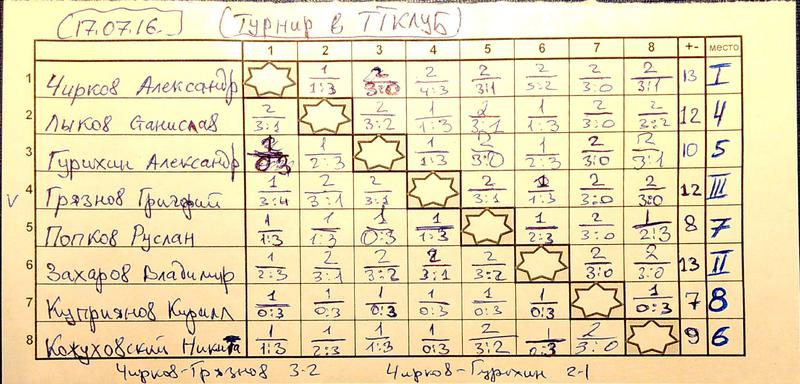 17.07.16. Турнир в ТТКЛУБ
1 2 3 4 5 6 7 8 +- место
1 Чирков Александр 1 2 2 2 2 2 2 13 I
1:3 3:0 4:3 3:1 5:2 3:0 3:1
2 Лыков Станислав 2 2 1 2 1 2 2 12 4
3:1 3:2 1:3 3:1 1:3 3:0 3:2
3 Гурихин Александр 1 1 1 2 1 2 2 10 5
0:3 2:3 1:3 3:0 2:3 3:0 3:1
V 4 Грязнов Григорий 1 2 2 2 1 2 2 12 III
3:4 3:1 3:1 3:1 1:3 3:0 3:0
5 Попков Руслан 1 1 1 1 1 2 1 8 7
1:3 1:3 0:3 1:3 2:3 3:0 2:3
6 Захаров Владимир 1 2 2 2 2 2 2 13 II
2:3 3:1 3:2 3:1 3:2 3:0 3:0
7 Куприянов Кирилл 1 1 1 1 1 1 1 7 8
0:3 0:3 0:3 0:3 0:3 0:3 0:3
8 Кожуховский Никита 1 1 1 1 2 1 2 9 6
1:3 2:3 1:3 0:3 3:2 0:3 3:0
Чирков-Грязнов 3-2 Чирков-Гурихин 2-1